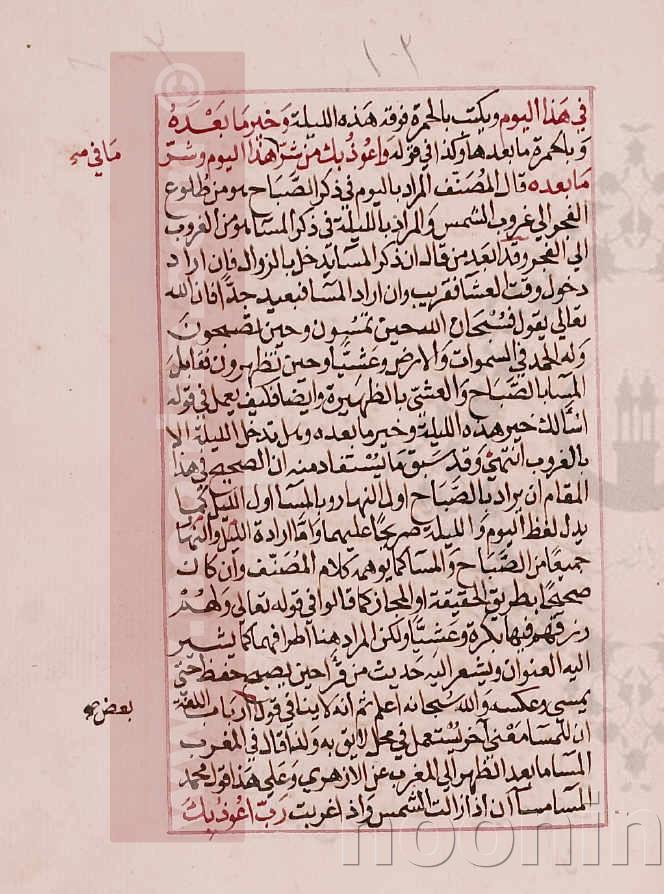 ١٠٢
في هذا اليوم ويكتب بالحمرة فوقه هذه الليلة وخير ما بعده
وبالحمرة ما بعدها وكذا في قوله واعوذ بك من شر هذا اليوم وشر
ما في
ما بعده قال المصنف المراد باليوم في ذكر الصباح هو من طلوع
الفجر الي غروب الشمس والمراد بالليلة في ذكر المسا هو من الغروب
الي الفجر وقد ابعد من قال ان ذكر المسا يدخل بالزوال فان اراد
دخول وقت العشا فقريب وان اراد المسا فبعيد جدا فان الله
تعالي يقول فسبحان الله حين تمسون وحين تصبحون
وله الحمد في السموات والارض وعشيا وحين تظهرون فقابل
المسا بالصباح والعشي بالظهيرة وايضا فكيف يعمل في قوله
اسالك خير هذه الليلة وخير ما بعده وهل تدخل الليلة الا
بالغروب انتهي وقد سبق ما يستفاد منه ان الصحيح في هذا
المقام ان يراد بالصباح اول النهار وبالمسا اول الليل كما
يدل لفظ اليوم والليلة صريحا عليهما واما ارادة الليل والنها
جميعا من الصباح والمسا كما يوهمه كلام المصنف وان كان
صحيحا بطريق الحقيقة او المجاز كما قالوا في قوله تعالي ولهم
رزقهم فيها بكرة وعشيا ولكن المراد هنا اطرافهما كما يشير
اليه العنوان ويشعر اليه حديث من قرا حين يصبح حفظ حتي
يمسي وعكسه والله سبحانه اعلم ثم انه لا ينافي قول ارباب اللغة
بعض
ان للمسا معني اخر يستعمل في محل لايق به ولذا قال في المغرب
المسا ما بعد الظهر الي المغرب عن الازهري وعلي هذا قول محمد
المسا مساان اذا زالت الشمس واذا غربت رب اعوذ بك
noonin